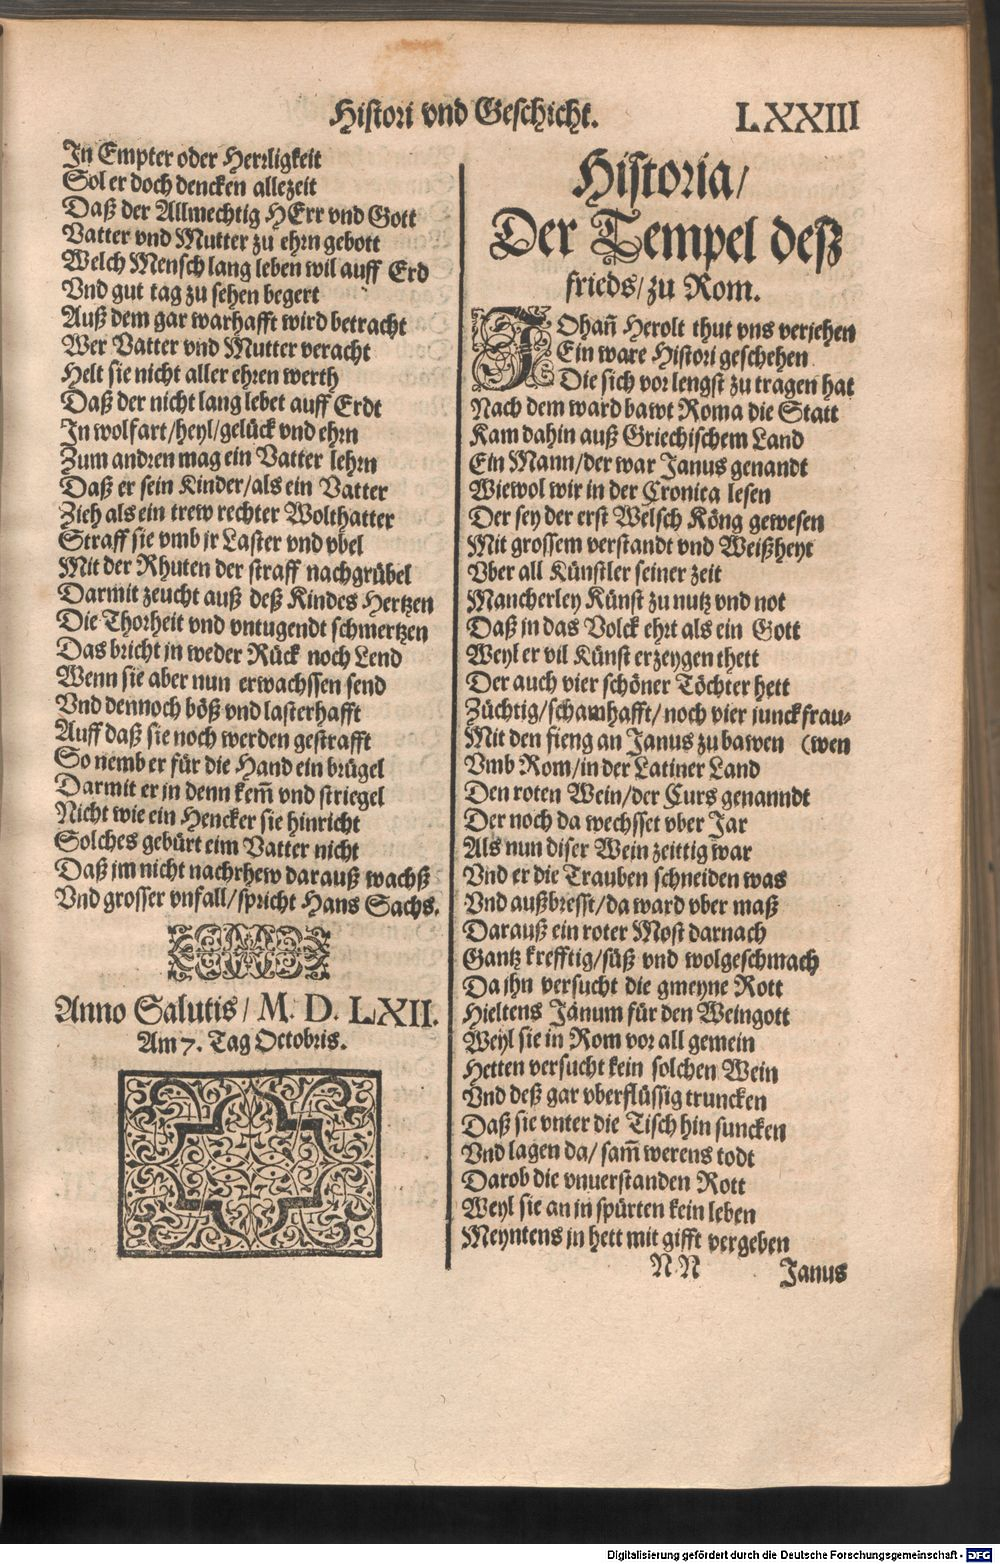 Histori vnd Geschicht. LXXIII
In Empter oder Herrligkeit
Sol er doch dencken allezeit
Daß der Allmechtig HErr vnd Gott
Vatter vnd Mutter zu ehrn gebott
Welch Mensch lang leben wil auff Erd
Vnd gut tag zu sehen begert
Auß dem gar warhafft wird betracht
Wer Vatter vnd Mutter veracht
Helt sie nicht aller ehren werth
Daß der nicht lang lebet auff Erdt
In wolfart/heyl/gelück vnd ehrn
Zum andren mag ein Vatter lehrn
Daß er sein Kinder/als ein Vatter
Zieh als ein trew rechter Wolthatter
Straff sie vmb jr Laster vnd vbel
Mit der Rhuten der straff nachgrübel
Darmit zeucht auß deß Kindes Hertzen
Die Thorheit vnd vntugendt schmertzen
Das bricht jn weder Rück noch Lend
Wenn sie aber nun erwachssen send
Vnd dennoch böß vnd lasterhafft
Auff daß sie noch werden gestrafft
So nemb er für die Hand ein brügel
Darmit er jn denn kem̃ vnd striegel
Nicht wie ein Hencker sie hinricht
Solches gebürt eim Vatter nicht
Daß jm nicht nachrhew darauß wachß
Vnd grosser vnfall/spricht Hans Sachs.
Anno Salutis/ M. D. LXII.
Am 7. Tag Octobris.
Historia/
Der Tempel deß
frieds/zu Rom.
JOhañ Herolt thut vns verjehen
Ein ware Histori geschehen
Die sich vor lengst zu tragen hat
Nach dem ward bawt Roma die Statt
Kam dahin auß Griechischem Land
Ein Mann/der war Janus genandt
Wiewol wir in der Cronica lesen
Der sey der erst Welsch Köng gewesen
Mit grossem verstandt vnd Weißheyt
Vber all Künstler seiner zeit
Mancherley Künst zu nutz vnd not
Daß jn das Volck ehrt als ein Gott
Weyl er vil Künst erzeygen thett
Der auch vier schöner Töchter hett
Züchtig/schamhafft/noch vier junckfrau-
Mit den fieng an Janus zu bawen (wen
Vmb Rom/in der Latiner Land
Den roten Wein/der Curs genanndt
Der noch da wechsset vber Jar
Als nun diser Wein zeittig war
Vnd er die Trauben schneiden was
Vnd außbresst/da ward vber maß
Darauß ein roter Most darnach
Gantz krefftig/süß vnd wolgeschmach
Da jhn versucht die gmeyne Rott
Hieltens Janum für den Weingott
Weyl sie in Rom vor all gemein
Hetten versucht kein solchen Wein
Vnd deß gar vberflüssig truncken
Daß sie vnter die Tisch hin suncken
Vnd lagen da/ sam̃ werens todt
Darob die vnuerstanden Rott
Weyl sie an jn spürten kein leben
Meyntens jn hett mit gifft vergeben
N N Janus
Digitalisierung gefördert durch die Deutsche Forschungsgemeinschaft - DFG